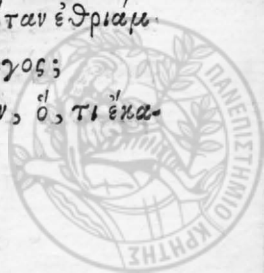 ταν ἐθριάμ-
γος;
ν, ὅ, τι ἔκα-
ΠΑΝΕΠΙΣΤΗΜΙΟ ΚΡΗΤΗΣ